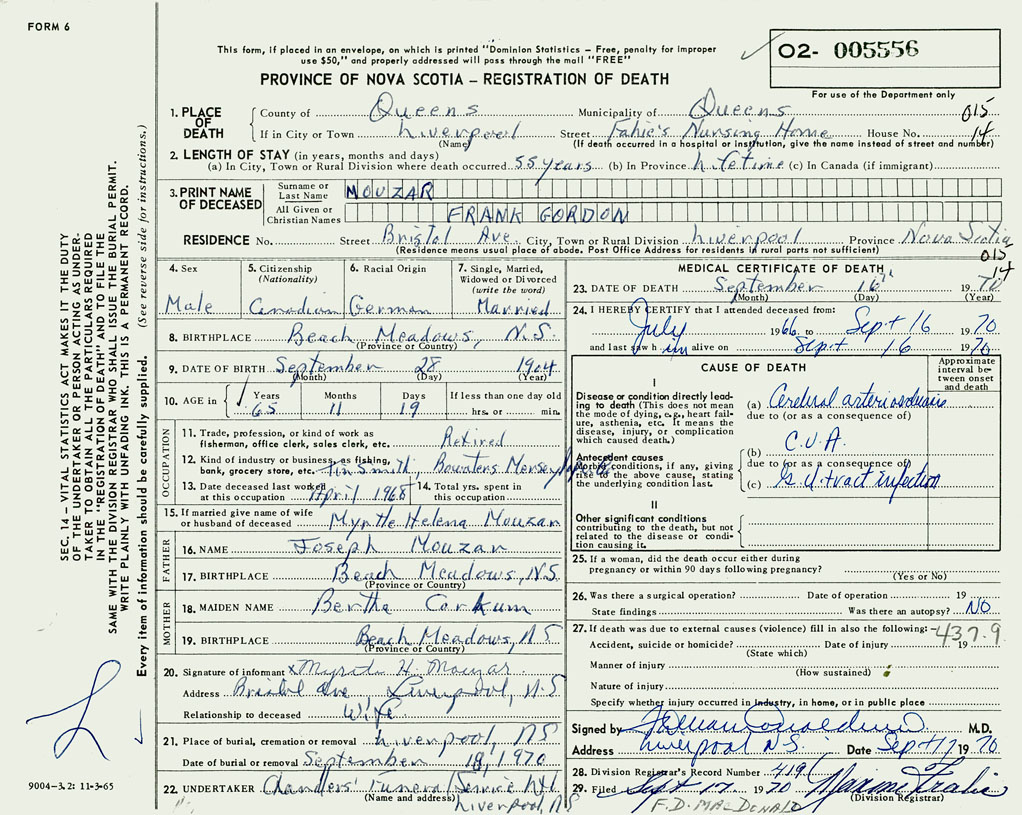 FORM 6
This form, if placed in an envelope, on which is printed "Dominion Statistics – Free, penalty for improper
use $50," and properly addressed will pass through the mail "FREE"
02- 005556
For use of the Department only
PROVINCE OF NOVA SCOTIA – REGISTRATION OF DEATH
015
14
1. PLACE OF DEATH
County of Queens Municipality of Queens
If in City or Town Liverpool Street Fahie's Nursing Home House No.
(Name) (If death occurred in a hospital or institution, give the name instead of street and number)
2. LENGTH OF STAY (in years, months and days)
(a) In City, Town or Rural Division where death occurred 55 years (b) In Province lifetime (c) In Canada (if immigrant)
3. PRINT NAME OF DECEASED
Surname or Last Name MOUZAR
All Given or Christian Names FRANK GORDON
RESIDENCE No. Street Bristol Ave. City, Town or Rural Division Liverpool Province Nova Scotia
(Residence means usual place of abode. Post Office Address for residents in rural parts not sufficient)
015
14
4. Sex
Male
5. Citizenship
(Nationality)
Canadian
6. Racial Origin
German
7. Single, Married,
Widowed or Divorced
(write the word)
Married
8. BIRTHPLACE Beach Meadows, N.S.
(Province or Country)
9. DATE OF BIRTH September 28 1904
(Month) (Day) (Year)
10. AGE in
Years Months Days If less than one day old
65 11 19 hrs. or min.
OCCUPATION
11. Trade, profession, or kind of work as
fisherman, office clerk, sales clerk, etc. Retired
12. Kind of industry or business, as fishing,
bank, grocery store, etc. Tin Smith, Bowaters Mersey
13. Date deceased last worked
at this occupation April 1968
14. Total yrs. spent in
this occupation
15. If married give name of wife
or husband of deceased Myrtle Helena Mouzar
FATHER
16. NAME Joseph Mouzar
17. BIRTHPLACE Beach Meadows, N.S.
(Province or Country)
MOTHER
18. MAIDEN NAME Bertha Corkum
19. BIRTHPLACE Beach Meadows, N S
(Province or Country)
20. Signature of informant x Myrtle H. Mouzar
Address Bristol Ave, Liverpool, N.S
Relationship to deceased Wife
21. Place of burial, cremation or removal Liverpool, N S
Date of burial or removal September 18, 1970
22. UNDERTAKER Chandlers' Funeral Service
(Name and address) Liverpool, N S
MEDICAL CERTIFICATE OF DEATH
23. DATE OF DEATH September 16th 1970
(Month) (Day) (Year)
24. I HEREBY CERTIFY that I attended deceased from:
July 1966 to Sept 16 1970
and last saw h im alive on Sept 16 1970
CAUSE OF DEATH
Approximate
interval be-
tween onset
and death
I
Disease or condition directly lead-
ing to death (This does not mean
the mode of dying, e.g., heart fail-
ure, asthenia, etc. It means the
disease, injury, or complication
which caused death.)
(a) Cerebral arteriosclerosis
due to (or as a consequence of)
Antecedent causes
Morbid conditions, if any, giving
rise to the above cause, stating
the underlying condition last.
(b) C.V.A.
due to (or as a consequence of)
(c) G. U. tract infection
II
Other significant conditions
contributing to the death, but not
related to the disease or condi-
tion causing it.
25. If a woman, did the death occur either during
pregnancy or within 90 days following pregnancy?
(Yes or No)
26. Was there a surgical operation? Date of operation 19
State findings Was there an autopsy? NO
27. If death was due to external causes (violence) fill in also the following:-
437.9
Accident, suicide or homicide? Date of injury 19
(State which)
Manner of injury
(How sustained)
Nature of injury
Specify whether injury occurred in industry, in home, or in public place
Signed by M.D.
Address Liverpool N.S. Date Sept 17 1970
28. Division Registrar's Record Number 419
29. Filed Sept 17 1970
(Division Registrar)
F.D. MACDONALD
SEC. 14 – VITAL STATISTICS ACT MAKES IT THE DUTY
OF THE UNDERTAKER OR PERSON ACTING AS UNDER-
TAKER TO OBTAIN ALL THE PARTICULARS REQUIRED
IN THE "REGISTRATION OF DEATH" AND TO FILE THE
SAME WITH THE DIVISION REGISTRAR WHO SHALL ISSUE THE BURIAL PERMIT.
WRITE PLAINLY WITH UNFADING INK. THIS IS A PERMANENT RECORD.
Every item of information should be carefully supplied. (See reverse side for instructions.)
9004-3.2: 11-3-65